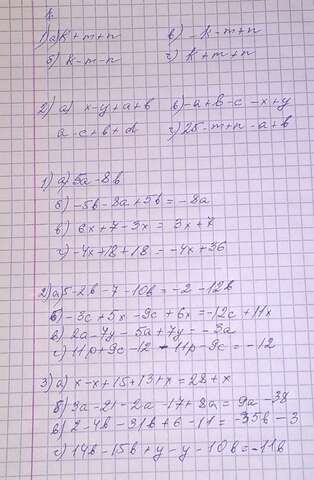 1.
1) а) k+m+n в) -k-m+n
б) k-m-n г) k+m+n
2) а) x-y+a+b в) -a+b-c-x+y
a-c+b+d г) 25-m+n-a+b
1) а) 5a-8b
б) -5b-8a+5b=-8a
в) 6x+7-3x=3x+7
г) -4x+18+18=-4x+36
2) а) 5-2b-7-10b=-2-12b
б) -3c+5x-9c+6x=-12c+11x
в) 2a-7y-5a+7y=-3a
г) 11p+9c-12-11p-9c=-12
3) а) x-x+15+13+x=28+x
б) 3a-21-2a-17+8a=9a-38
в) 2-4b-31b+6-11=-35b-3
г) 14b-15b+y-y-10b=-11b